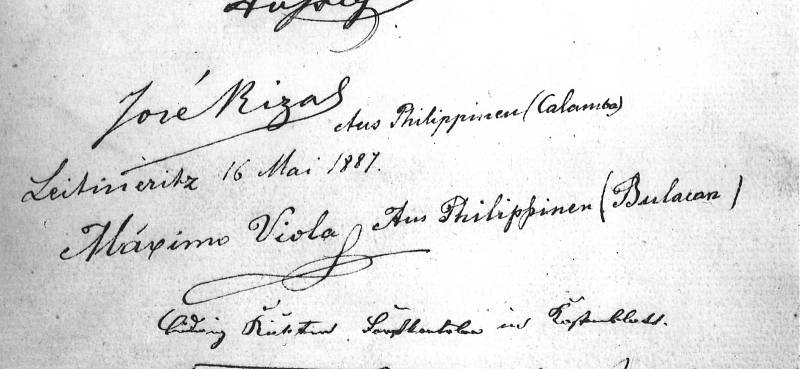 José Rizal Aus Philippinen (Calamba)
Leitmeritz 16 Mai 1887.
Máximo Viola Aus Philippinen (Bulacan)
Ludwig in